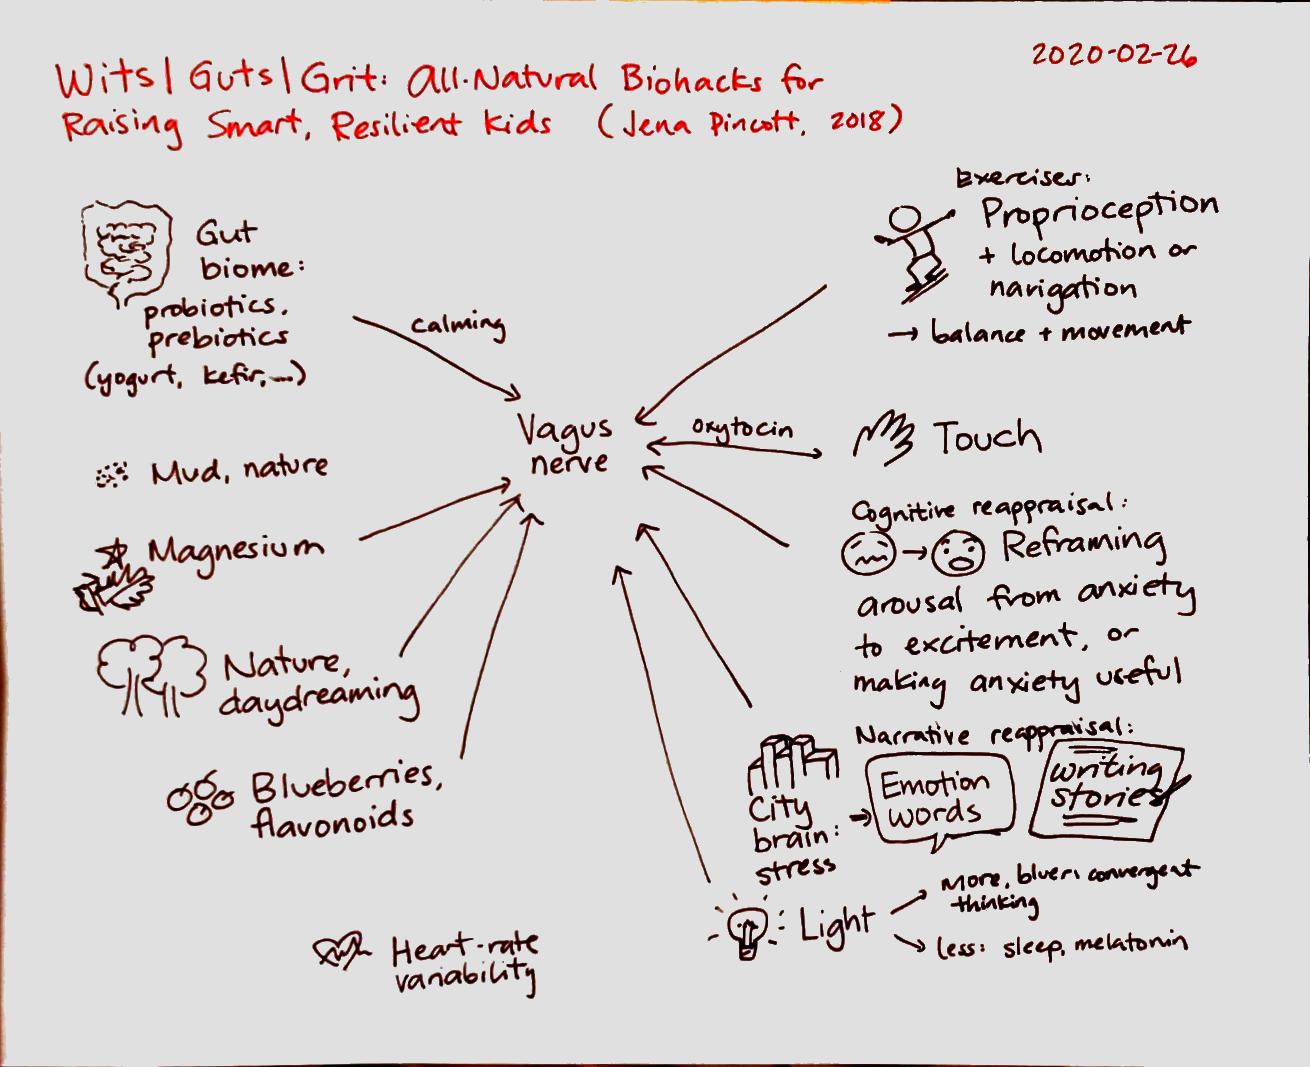 2020-02-26
Wits|Guts|Grit: All-Natural Biohacks for
Raising Smart, Resilient Kids (Jena Pincott, 2018)
Gut
biome:
probiotics,
prebiotics
(yogurt, kefir,...)
calming
Mud, nature
Magnesium
Nature,
daydreaming
Blueberries,
flavonoids
Heart-rate
variability
Vagus
nerve
Exercises:
Proprioception
+ locomotion or
navigation
→ balance + movement
oxytocin
Touch
Cognitive reappraisal:
→ Reframing
arousal from anxiety
to excitement, or
making anxiety useful
Narrative reappraisal:
City
brain:
stress
→
Emotion
words
writing
stories
Light
More, bluer: convergent
thinking
less: sleep, melatonin